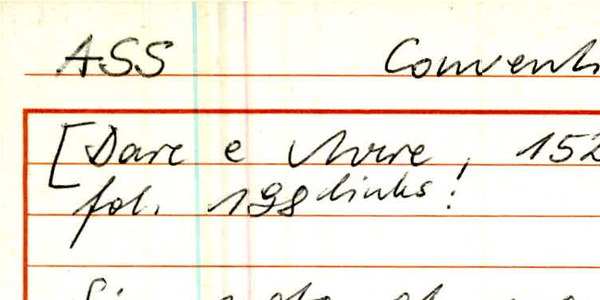 ASS Convent
[Dare e Avere, 152
fol. 198 links!